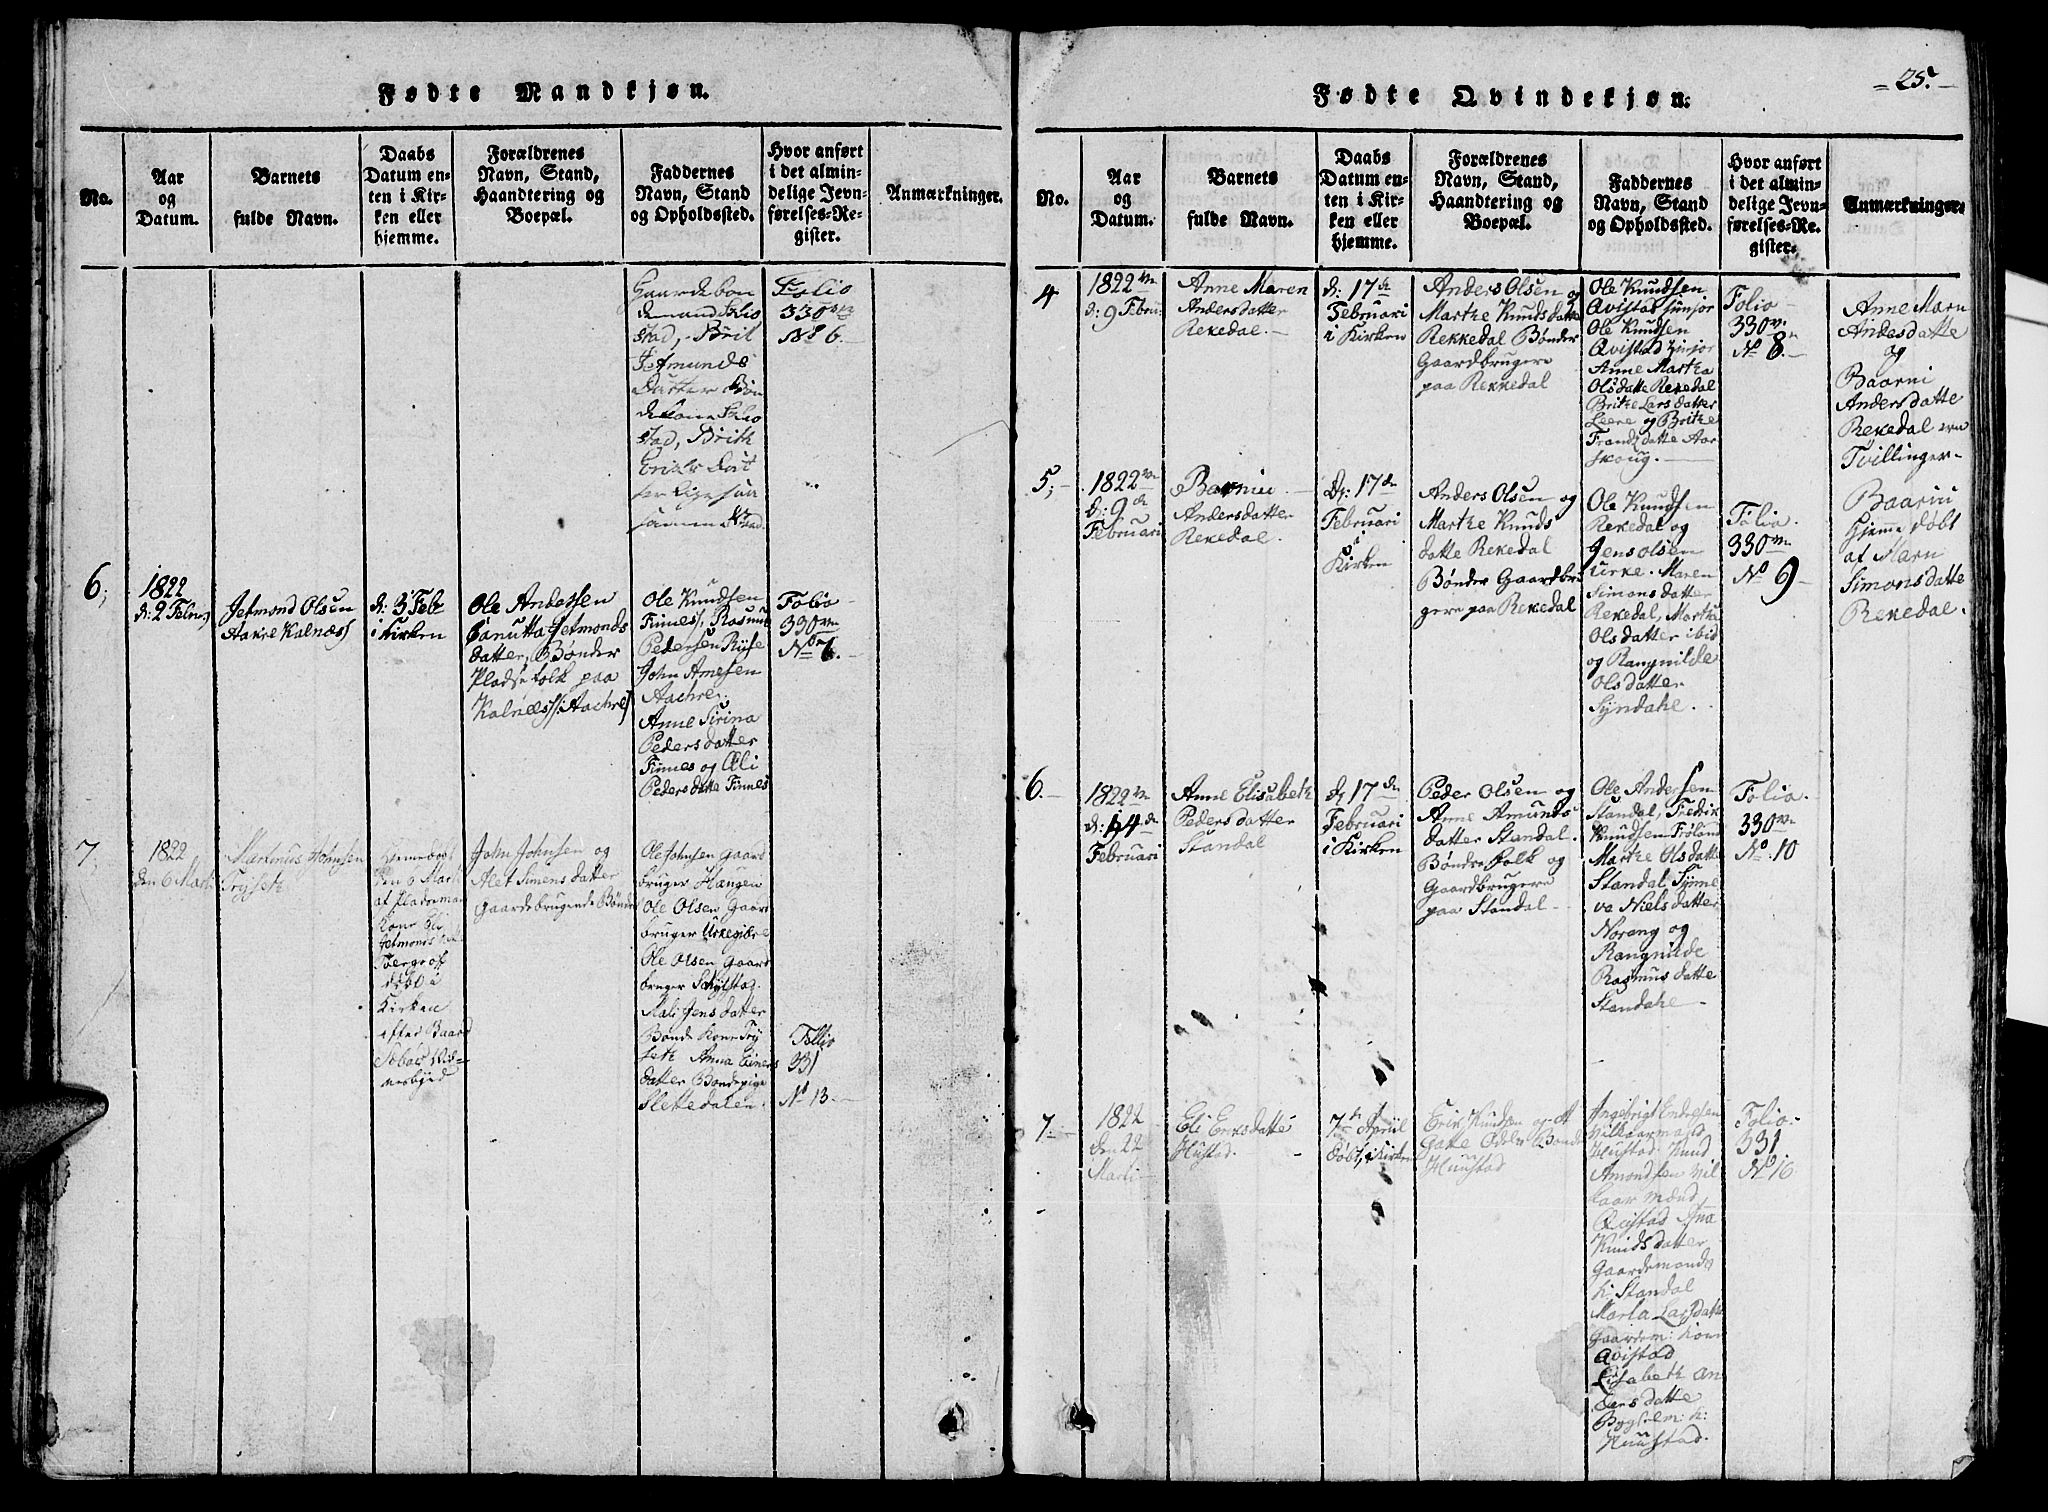 Fødte Mandkjøn.
No.
Aar
og
Datum.
Barnets
fulde Navn.
Daabs
Datum en-
ten i Kir-
ken eller
hjemme.
Forældrenes
Navn, Stand,
Haandtering og
Boepæl.
Faddernes
Navn, Stand
og Opholdssted.
Hvor anført
i det almin-
delige Jevn-
førelses-Re-
gister.
Anmærkninger.
Gaardebon
demand Skio
stad, Bril
Jetmunds
Datter Bøn
dekone Skio
stad, Brith
Datt
Folio
330
No 6.
6,
1822
d: 2 Febr
Jetmond Olsen
Aakre Kalnæss
d: 3 Feb
i Kirken
Ole Andersen
Hanutta Jetmonds
datter, Bønder
Pladsefolk paa
Kalnæss Aachre
Ole Knudsen
Finnes, Rasmus
Pedersen Ryse
John Arnesen
Aachre.
Anne Sirina
Pedersdatter
Finnes og Eli
Pedersdatte Finnes
Folio
330
No 7.
7,
1822
den 6 Marti
Martinus Johnsen
Trysek
Hiemedøbt
den 6 Marti
af Pladseman
Kone Eli
Jetmonds
Kirken
efter Baard
John Johnsen og
Alet Simensdatter
Gaardebrugende Bønder
Ole Johnsen Gaard
bruger Haugen
Ole Olsen Gaard
bruger Urkegibre
Ole Olsen Gaard
bruger Schylstad.
Mali Jensdatter
Bonde Kone Try
setk Anna Einers
datter Bondepige
Slettedalen.
Follio
331
No 13.
Fødte Qvindekjøn.
25.
No.
Aar
og
Datum.
Barnets
fulde Navn.
Daabs
Datum en-
ten i Kir-
ken eller
hjemme.
Forældrenes
Navn, Stand,
Haandtering og
Boepæl.
Faddernes
Navn, Stand
og Opholdssted.
Hvor anført
i det almin-
delige Jevn-
førelses-Re-
gister.
Anmærkninger.
4
1822
d: 9 Febru:
Anne Maren
Andersdatter
Rekedal.
d: 17de
Februari
i Kirken
Anders Olsen og
Marthe Knudsdatte
Rekkedal Bønder
Gaardbrugere
paa Rekkedal
Ole Knudsen
Qvistad junjor
Ole Knudsen
Qvistad
Anne Martha
Olsdatte Rekedal
Brithe Larsdatter
Leere og Brithe
Frandsdatte Aar
skoug.
Folio
330
No 8.
Anne Marn
Andesdatte
og
Baarni
Andersdatte
Rekedal ere
Tvillinger
5,
1822
d: 9de
Februari
Baarniu
Andersdatter
Rekedal.
D: 17de
Februari
i
Kirken
Anders Olsen og
Marthe Knuds
datte Rekedal
Bønder Gaardbru
gere paa Rekedal
Ole Knudsen
Rekedal og
Jens Olsen
Urke. Maren
Simonsdatter
Rekedal, Martha
Olsdatter ibid
og Rangnilde
Olsdatter
Syndahe.
Folio.
330
No 9
Baarni
hjemme døbt
af Marn
Simonsdatte
Rekedal.
6.
1822
d: 14de
Februari
Anne Elisabeth
Pedersdatter
Standal
d: 17de
Februari
i Kirken
Peder Olsen og
Anne Amunds
datter Standal.
Bønder folk og
Gaardbrugere
paa Standal
Ole Andersen
Standal, Fredik
Knudsen Froland
Marthe Olsdatte
Standal, Synne
va Nielsdatter
Norang og
Rangnilde
Rasmusdatte
Standahe
Folio.
330
No. 10
7.
1822
den 22
Marti
Eli Eriksdatte
Hustad.
7de Apriil
døbt, i Kirken
Erik Knudsen og
Bonde
Huustad
Ingebrigt Endresen
Vilkaarmand
Hustad Knud
Amondsen Vil
kaar mænd
Qvistad Ana
Knudsdatter
Gaardemonds
k: Standal
Marta Larsdatte
Gaardem: Kone
Qvistad
Elisabeth An
dersdatte
Bygselm: k:
Huustad.
Folio.
331
No 16